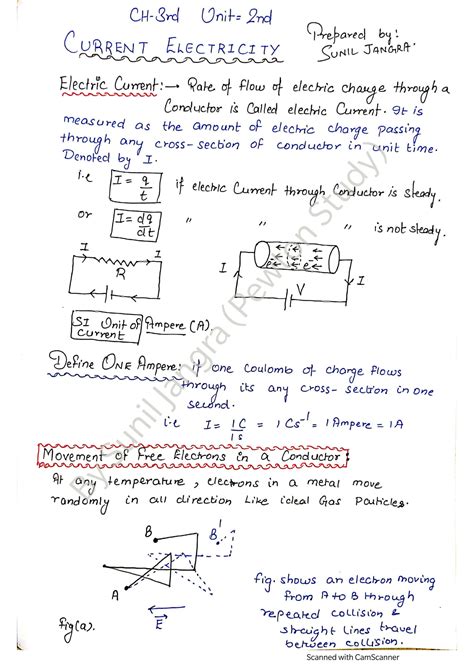 CH-3rd Unit=2nd
CURRENT ELECTRICITY
Prepared by:
SUNIL JANGRA
Electric Current:→ Rate of flow of electric charge through a
Conductor is Called electric Current. It is
measured as the amount of electric charge passing
through any cross-section of conductor in unit time.
Denoted by I.
i.e I = q/t if electric Current through Conductor is steady.
or I = dq/dt " " " is not steady.
I I
R
I I
V
e e
SI Unit of Current Ampere (A).
Define ONE Ampere: if one Coulomb of charge flows
through its any cross-section in one
second.
i.e I = 1C/1s = 1 Cs⁻¹ = 1 Ampere = 1A
Movement of Free Electrons in a Conductor:
At any temperature, electrons in a metal move
randomly in all direction Like ideal Gas Particles.
B B'
A
E
fig(a).
fig. shows an electron moving
from A to B through
repeated collision &
straight lines travel
between collision.
By Sunil Jangra (Pewton Study)
Scanned with CamScanner